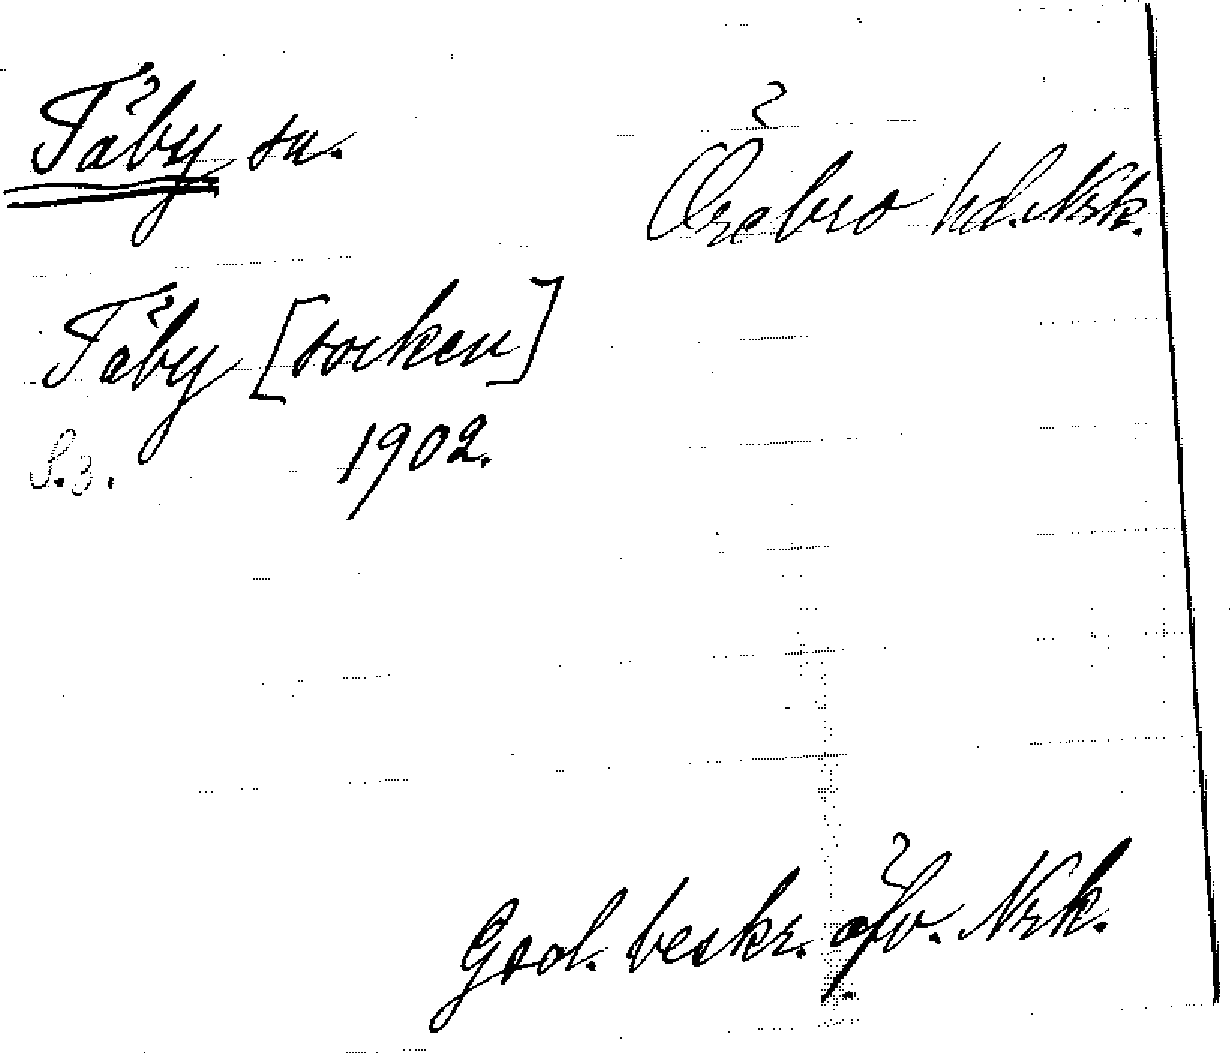 Täby sn.
Örebro hd. Nrk.
Täby [socken]
S. 3. 1902.
Geol. beskr. öfv. Nrk.